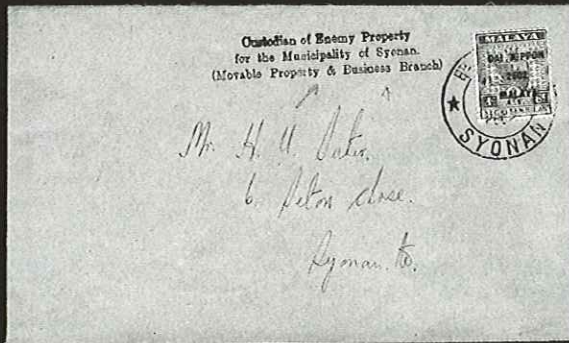 Custodian of Enemy Property
for the Municipality of Syonan.
(Movable Property & Business Branch)
MALAYA
DAI NIPPON
2602
MALAYA
SYONAN
Mr. H. U.
6. close.
Syonan. to.